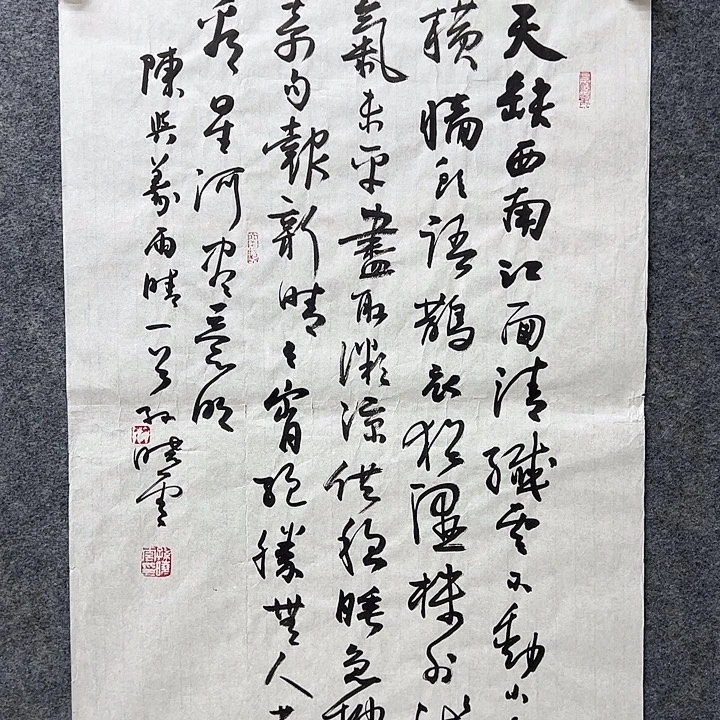 天缺西南江面清纖雲不動小
橫牆頭語鵲衣猶濕樓外
氣未平盡取微涼供穩睡急搜
奇句報新晴今宵絕勝無人共
看星河盡意明
陳與義雨晴一首孫曉雲